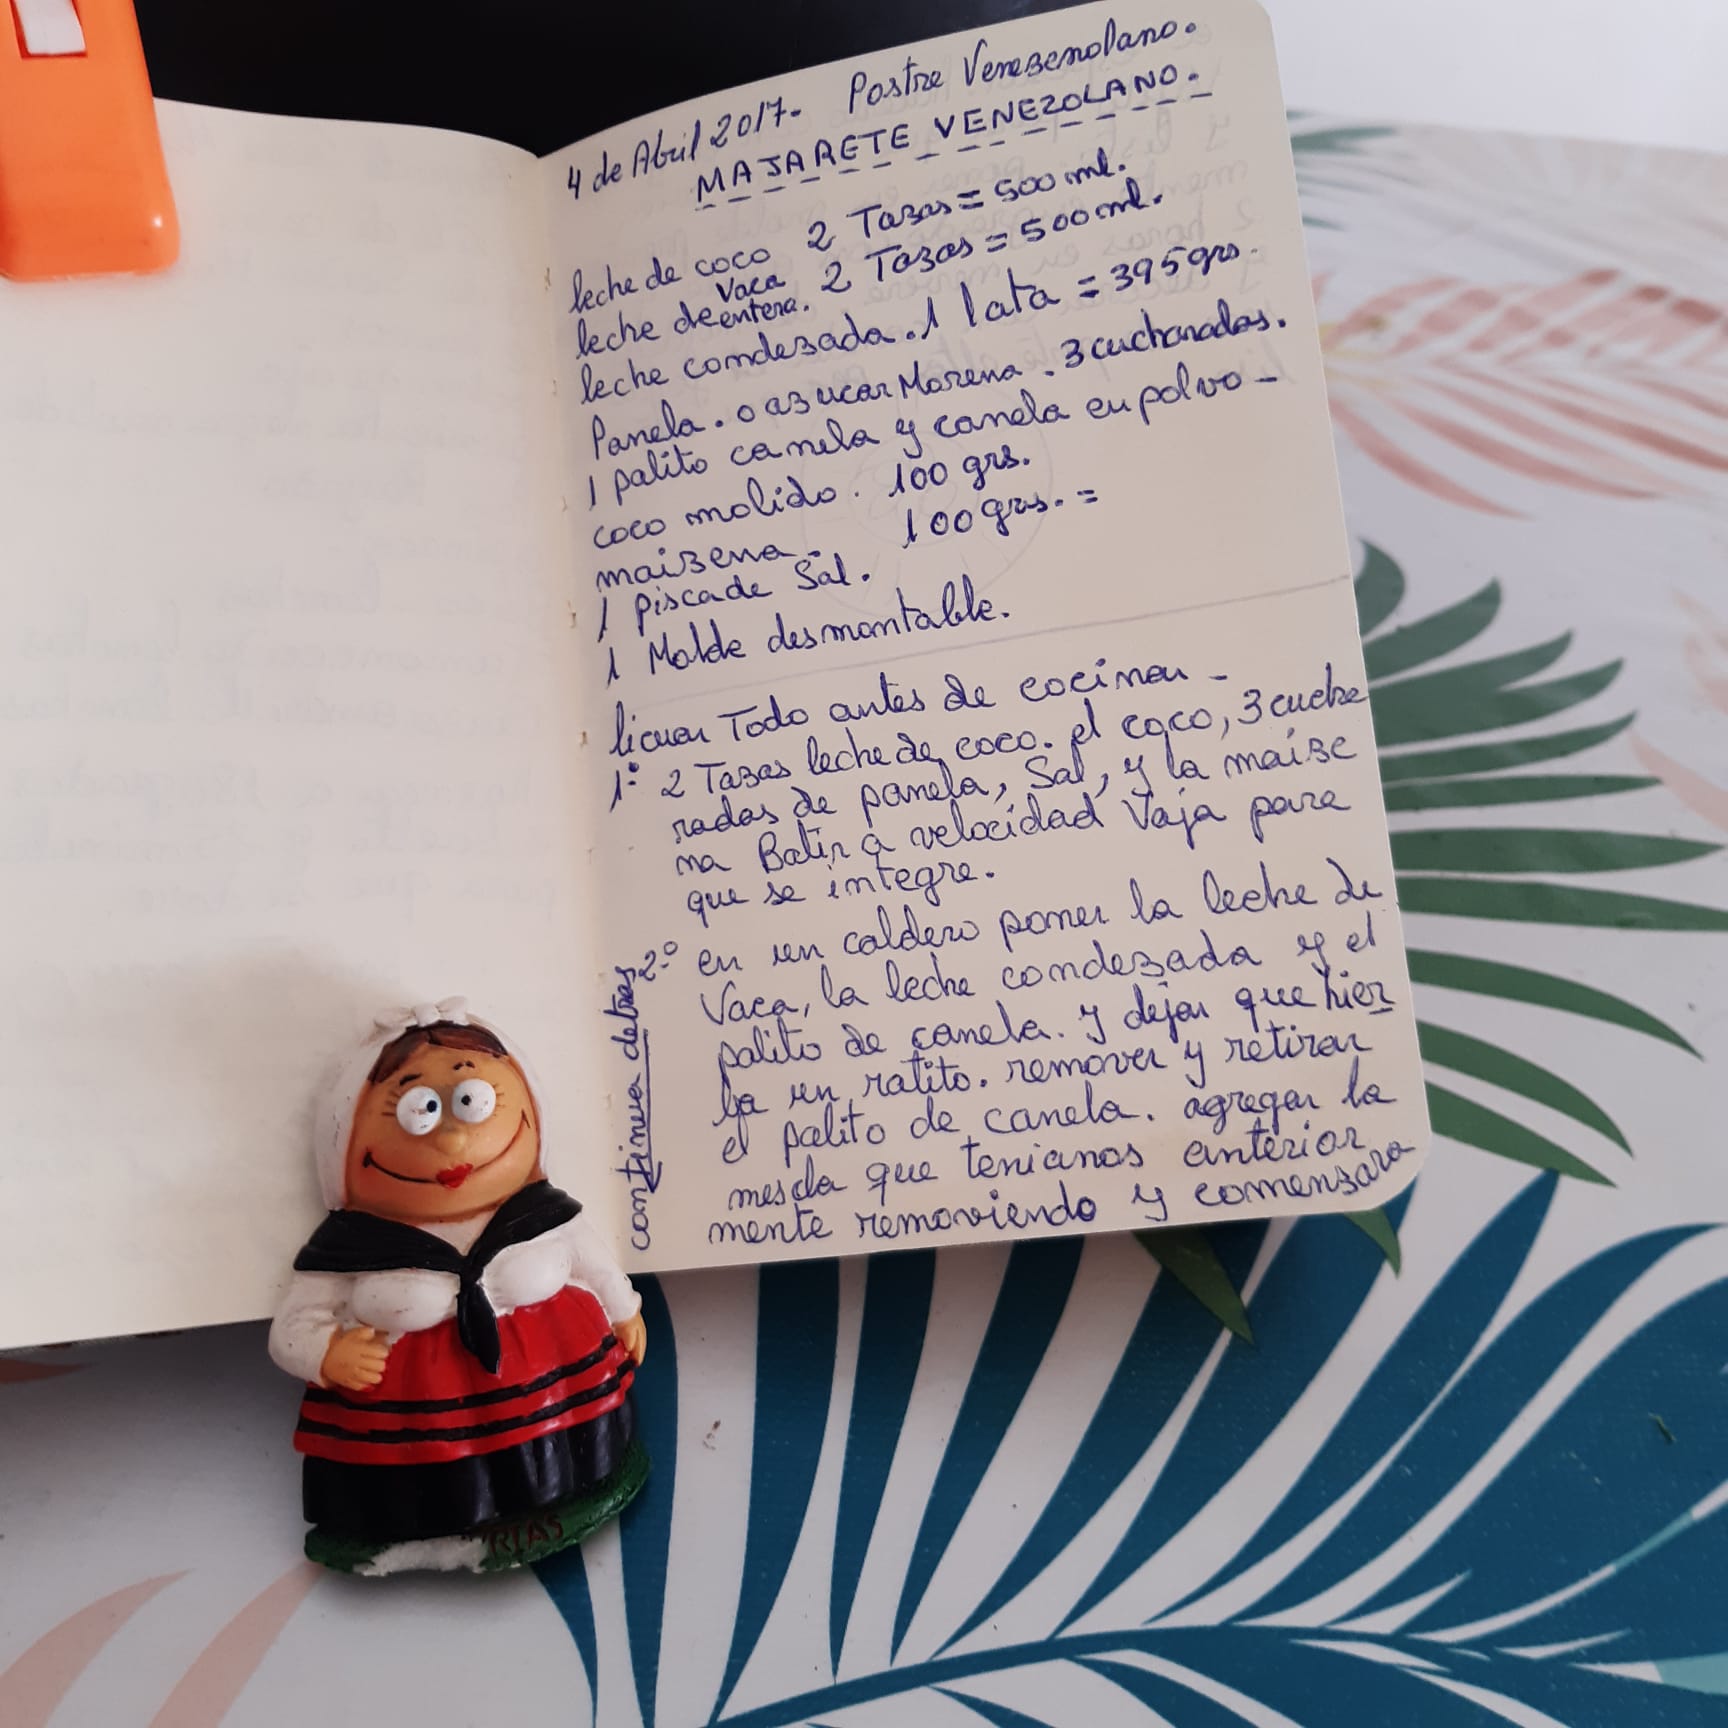 4 de Abril 2017- Postre Venesenolano.
MAJARETE VENEZOLANO.
leche de coco 2 Tazas = 500 ml.
leche de vaca entera. 2 Tazas = 500 ml.
leche condezada. 1 lata = 395 grs.
Panela. o azucar Morena. 3 cucharadas.
1 palito canela y canela en polvo -
coco molido. 100 grs.
maizena - 100 grs. =
1 Pisca de Sal.
1 Molde desmontable.
licuar Todo antes de cocinar -
1º 2 Tazas leche de coco. el coco, 3 cucha
radas de panela, Sal, y la maize
na Batir a velocidad Vaja para
que se integre.
2.º en un caldero poner la leche de
Vaca, la leche condezada y el
palito de canela. y dejar que hier
ba un ratito. remover y retirar
el palito de canela. agregar la
mescla que tenianos anterior
mente removiendo y comenzara
continua detras
RIAS